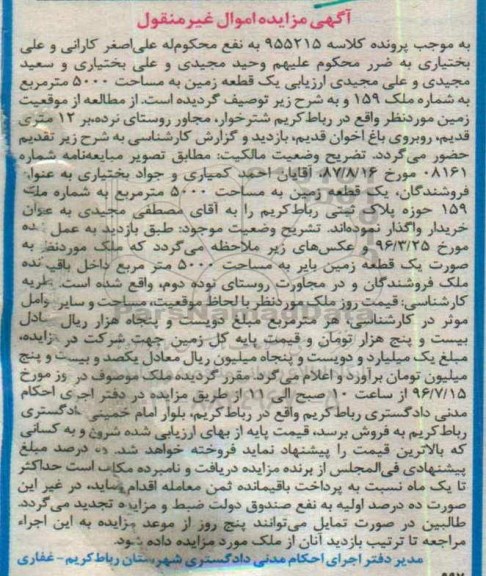 آگهی مزایده اموال غیر منقول
به موجب پرونده کلاسه ۹۵۵۲۱۵ به نفع محکوم‌له علی‌اصغر کارانی و علی
بختیاری به ضرر محکوم علیهم وحید مجیدی و علی بختیاری و سعید
مجیدی و علی مجیدی ارزیابی یک قطعه زمین به مساحت ۵۰۰۰ مترمربع
به شماره ملک ۱۵۹ و به شرح زیر توصیف گردیده است. از مطالعه از موقعیت
زمین موردنظر واقع در رباط‌کریم شترخوار، مجاور روستای نرده‌بر ۱۲ متری
قدیم، روبروی باغ اخوان قدیم، بازدید و گزارش کارشناسی به شرح زیر تقدیم
حضور می‌گردد. تضریح وضعیت مالکیت: مطابق تصویر مبایعه‌نامه شماره
۰۸۱۶۱ مورخ ۸۷/۸/۱۶ آقایان احمد کمیاری و جواد بختیاری به عنوان
فروشندگان، یک قطعه زمین به مساحت ۵۰۰۰ مترمربع به شماره ملک
۱۵۹ حوزه پلاک ثبتی رباط‌کریم را به آقای مصطفی مجیدی به عنوان
خریدار واگذار نموده‌اند. تشریح وضعیت موجود: طبق بازدید به عمل ده
مورخ ۹۶/۳/۲۵ عکس‌های زیر ملاحظه می‌گردد که ملک موردنظر به
صورت یک قطعه زمین بایر به مساحت ۵۰۰۰ متر مربع داخل باقی نده
ملک فروشندگان و در مجاورت روستای نوده دوم، واقع شده است. ظریه
کارشناسی: قیمت روز ملک موردنظر با لحاظ موقعیت، مساحت و سایر وامل
موثر در کارشناسی، هر مترمربع مبلغ دویست و پنجاه هزار ریال عادل
بیست و پنج هزار تومان و قیمت پایه کل زمین جهت شرکت در زایده،
مبلغ یک میلیارد و دویست و پنجاه میلیون ریال معادل یکصد و بیست و پنج
میلیون تومان برآورد و اعلام می‌گرد. مقرر گردیده ملک موصوف در وز مورخ
۹۶/۷/۱۵ از ساعت ۱۰ صبح الی ۱۱ از طریق مزایده در دفتر اجرای احکام
مدنی دادگستری رباط‌کریم واقع در رباط‌کریم، بلوار امام خمینی دادگستری
رباط‌کریم به فروش برسد، قیمت پایه از بهای ارزیابی شده شروع و به کسانی
که بالاترین قیمت را پیشنهاد نماید فروخته خواهد شد. درصد مبلغ
پیشنهادی فی‌المجلس از برنده مزایده دریافت و نامبرده مکلف است حداکثر
تا یک ماه نسبت به پرداخت باقیمانده ثمن معامله اقدام نماید، در غیر این
صورت ده درصد اولیه به نفع صندوق دولت ضبط و مزایده تجدید می‌گردد.
طالبین در صورت تمایل می‌توانند پنج روز از موعد مزایده به این اجراء
مراجعه تا ترتیب بازدید آنان از ملک مورد مزایده داده شود.
مدیر دفتر اجرای احکام مدنی دادگستری شهرستان رباط‌کریم - غفاری
ParsNamadData